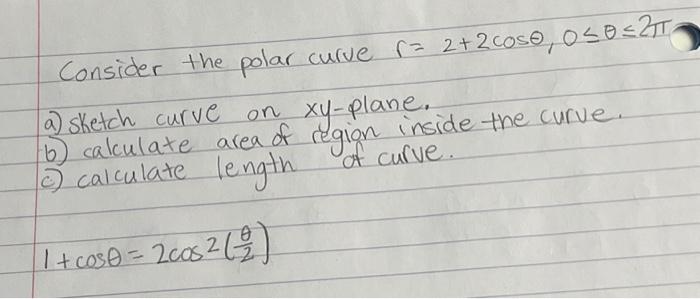 Consider the polar curve r = 2+2cosθ, 0≤θ≤2π
a) sketch curve on xy-plane.
b) calculate area of region inside the curve.
c) calculate length of curve.
1+cosθ = 2cos²(θ/2)